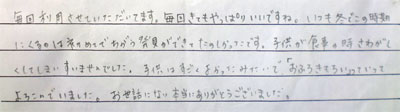 毎回利用させていただいてます。毎回きてもやっぱりいいですね。いつも冬でこの時期
にくるのは初めてでちがう発見ができてたのしかったです。子供が食事の時さわがし
くしてしまいすいませんでした。子供はすごくよかったみたいで「おふろきもちいいっていって
よろこんでいました。お世話になり本当にありがとうございました。